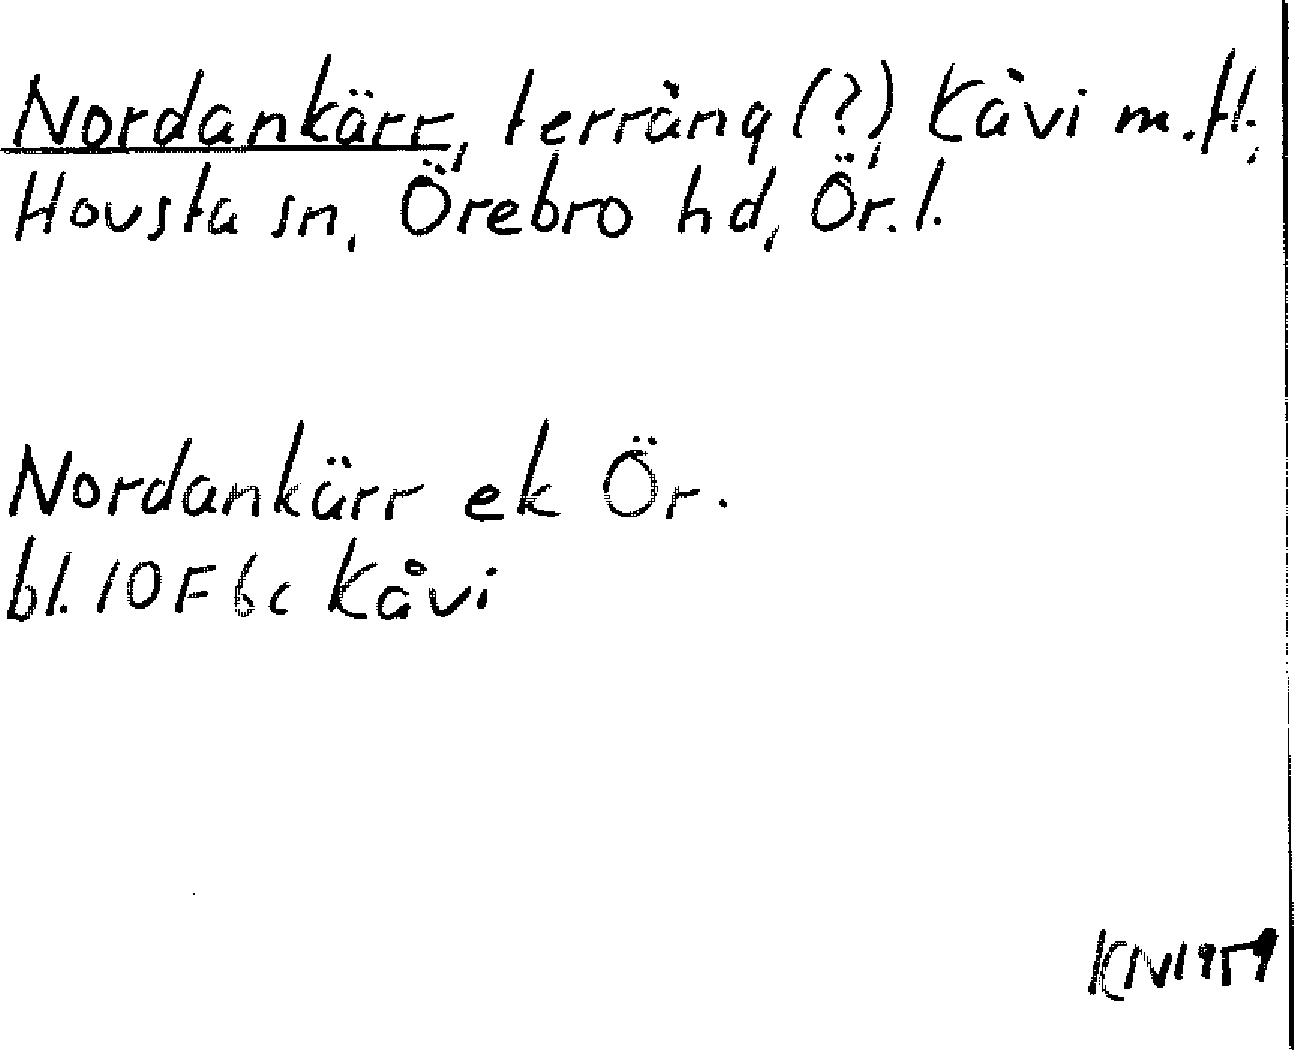 Nordankärr, terräng (?), Kåvi m.fl.,
Hovsta sn, Örebro hd, Ör. l.
Nordankärr ek Ör.
bl. 10F 6c Kåvi
KN 1959